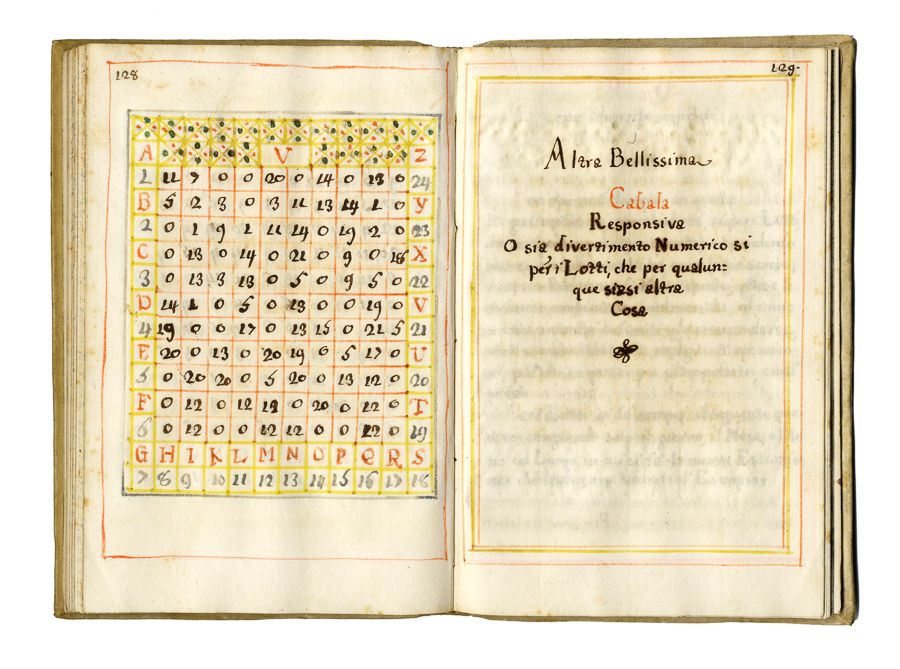 128
A V Z
1 11 7 0 0 20 0 14 0 13 0 24
B 5 2 3 0 3 11 13 14 1 0 Y
2 0 1 9 1 11 14 0 19 2 0 23
C 0 13 0 14 0 21 0 9 0 18 X
3 0 13 3 13 0 5 0 9 5 0 22
D 14 1 0 5 0 13 0 0 19 0 V
4 19 0 0 17 0 13 15 0 21 5 21
E 20 0 13 0 20 19 0 5 17 0 U
5 0 20 20 0 5 20 0 13 12 0 20
F 0 12 0 12 19 0 20 0 12 0 T
6 0 12 0 0 12 12 0 0 12 0 19
G H I K L M N O P Q R S
7 8 9 10 11 12 13 14 15 16 17 18
129.
Altra Bellissima
Cabala
Responsiva
O sia divertimento Numerico si
per i Lotti, che per qualun=
que siasi altra
Cosa